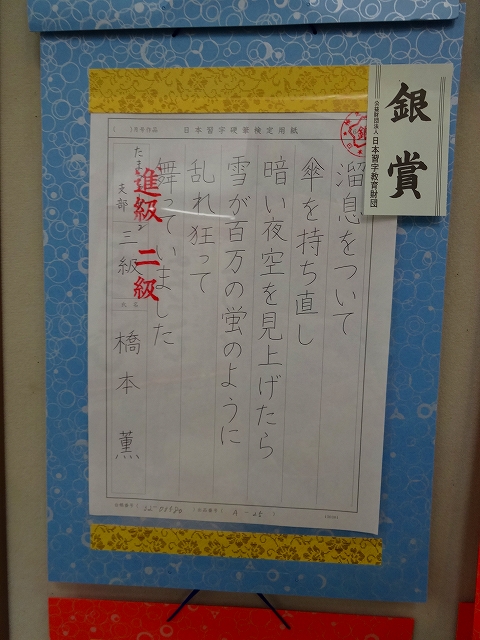 銀賞
公益財団法人 日本習字教育財団
月号作品
日本習字硬筆検定用紙
溜息をついて
傘を持ち直し
暗い夜空を見上げたら
雪が百万の蛍のように
乱れ狂って
舞っていました
進級 二級
支部 三級 橋本 薫